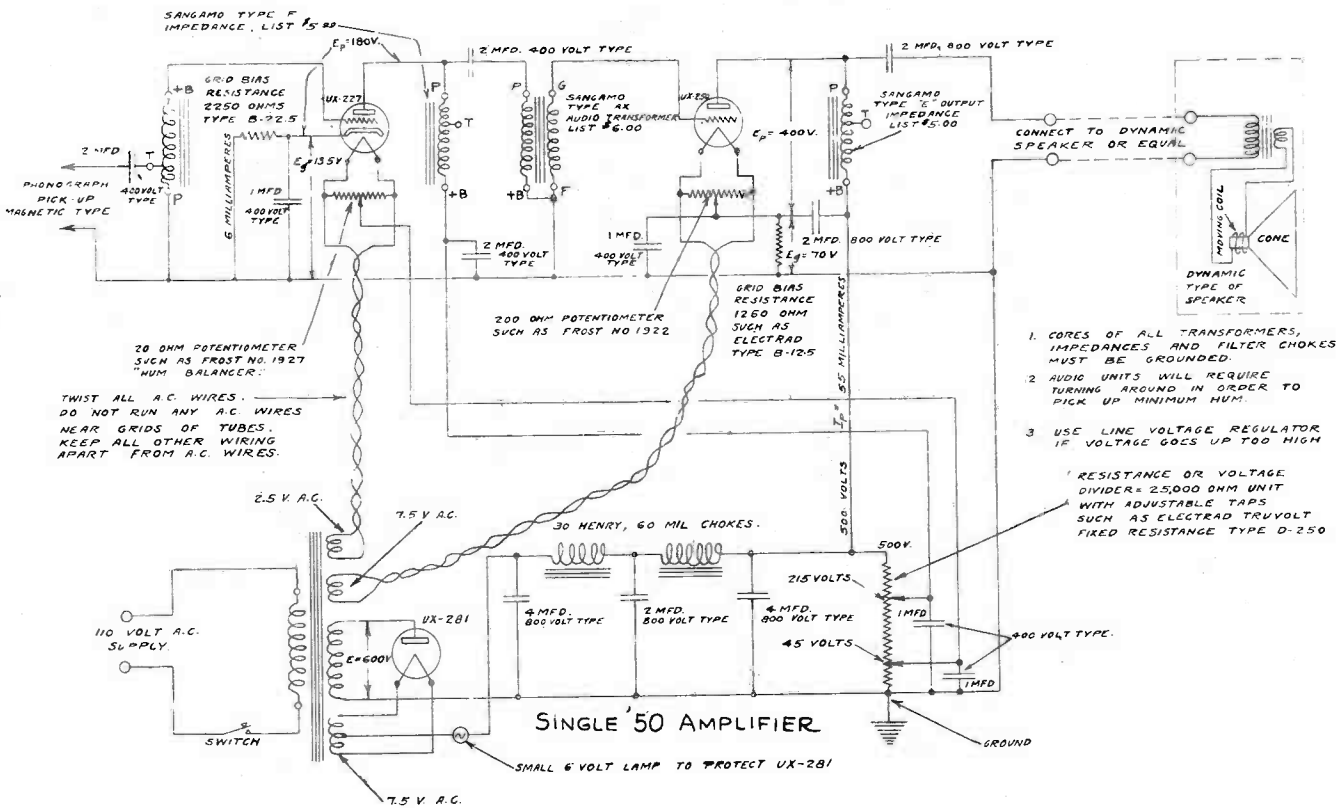 SANGAMO TYPE F
IMPEDANCE, LIST $5.00
Ep=180V.
2 MFD. 400 VOLT TYPE
2 MFD, 800 VOLT TYPE
+B
GRID BIAS
RESISTANCE
2250 OHMS
TYPE B-22.5
UX-227
P
T
+B
P
G
SANGAMO
TYPE AX
AUDIO TRANSFORMER
LIST $6.00
+B
F
UX-250
Ep=400V.
P
T
+B
SANGAMO
TYPE "E" OUTPUT
IMPEDANCE
LIST $5.00
CONNECT TO DYNAMIC
SPEAKER OR EQUAL
2 MFD
T
400 VOLT
TYPE
P
PHONOGRAPH
PICK-UP
MAGNETIC TYPE
6 MILLIAMPERES
Eg=13.5V
1 MFD
400 VOLT
TYPE
2 MFD.
400 VOLT
TYPE
1 MFD.
400 VOLT
TYPE
2 MFD. 800 VOLT TYPE
Eg=70V
MOVING COIL
CONE
DYNAMIC
TYPE OF
SPEAKER
200 OHM POTENTIOMETER
SUCH AS FROST NO 1922
GRID BIAS
RESISTANCE
1260 OHM
SUCH AS
ELECTRAD
TYPE B-12.5
20 OHM POTENTIOMETER
SUCH AS FROST NO. 1927
"HUM BALANCER."
TWIST ALL A.C. WIRES.
DO NOT RUN ANY A.C. WIRES
NEAR GRIDS OF TUBES.
KEEP ALL OTHER WIRING
APART FROM A.C. WIRES.
1. CORES OF ALL TRANSFORMERS,
IMPEDANCES AND FILTER CHOKES
MUST BE GROUNDED.
2 AUDIO UNITS WILL REQUIRE
TURNING AROUND IN ORDER TO
PICK UP MINIMUM HUM.
3 USE LINE VOLTAGE REGULATOR
IF VOLTAGE GOES UP TOO HIGH
RESISTANCE OR VOLTAGE
DIVIDER = 25,000 OHM UNIT
WITH ADJUSTABLE TAPS
SUCH AS ELECTRAD TRUVOLT
FIXED RESISTANCE TYPE D-250
500 VOLTS Ip = 55 MILLIAMPERES
2.5 V. A.C.
7.5 V A.C.
30 HENRY, 60 MIL CHOKES.
500V.
215 VOLTS
1 MFD
400 VOLT TYPE.
45 VOLTS
1 MFD
110 VOLT A.C.
SUPPLY.
E=600V
UX-281
4 MFD.
800 VOLT TYPE
2 MFD.
800 VOLT TYPE
4 MFD.
800 VOLT TYPE
SWITCH
SINGLE '50 AMPLIFIER
GROUND
SMALL 6 VOLT LAMP TO PROTECT UX-281
7.5 V. A.C.